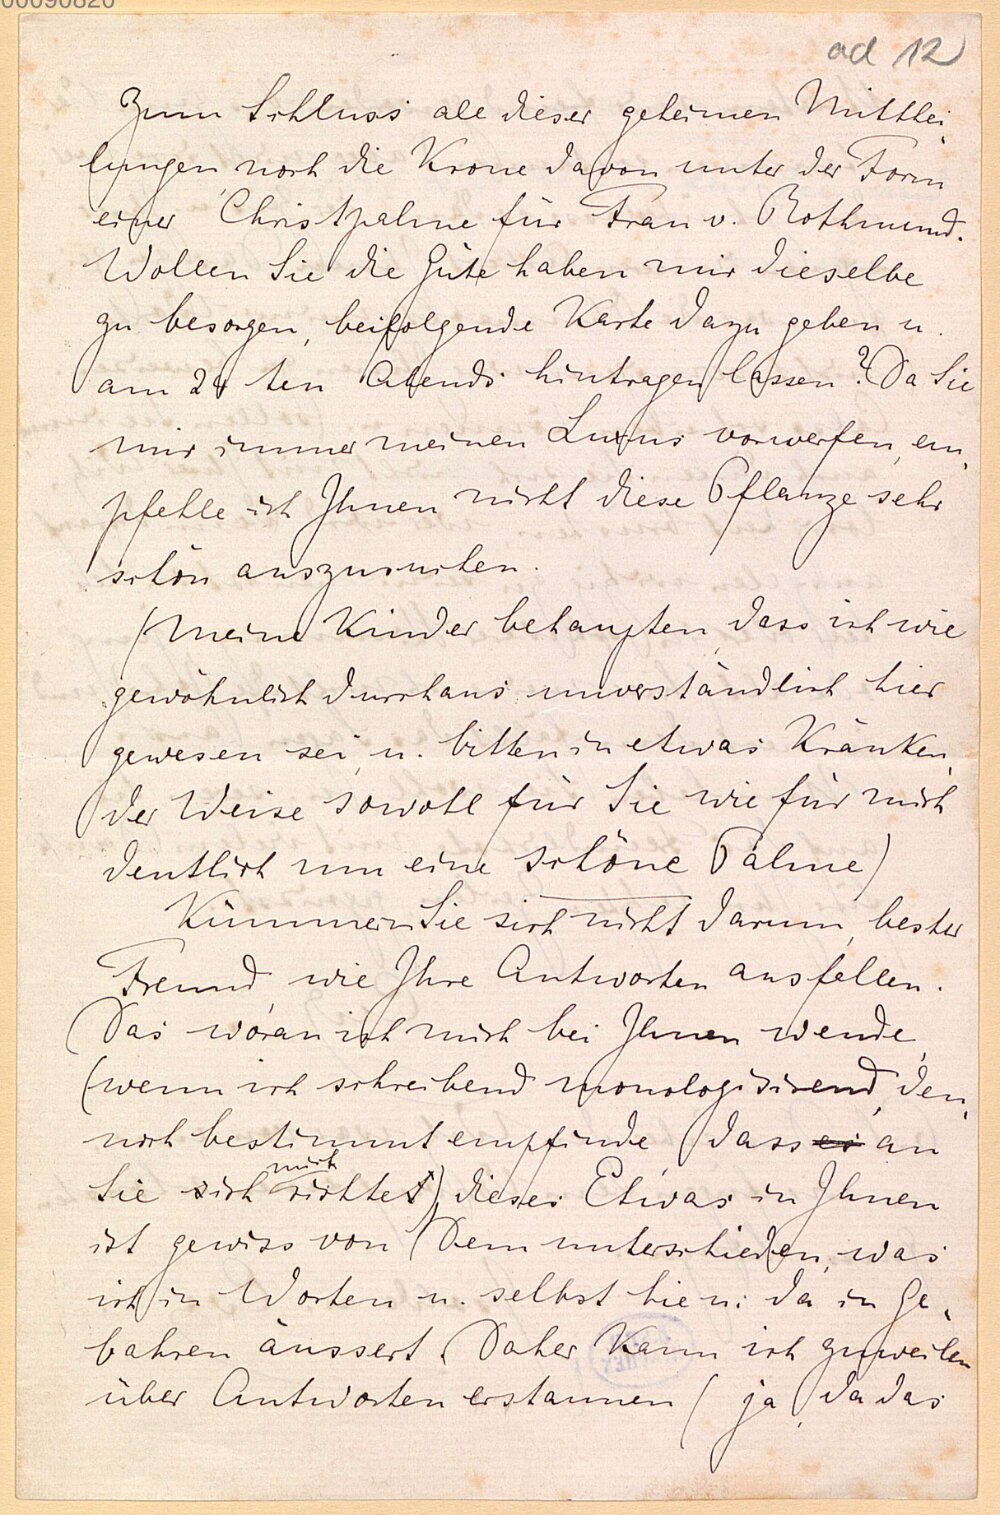 00090820
ad 12
Zum Schluss alle dieser geheimen Mitthei-
lungen noch die Krone davon unter der Form
einer Christpalme für Frau v. Rothmund.
Wollen Sie die Güte haben mir dieselbe
zu besorgen, beifolgende Karte dazu geben u.
am 24ten Abends hintragen lassen? Da Sie
mir immer meinen Luxus vorwerfen, em-
pfehle ich Ihnen nicht diese Pflanze sehr
schön auszusuchen.
(Meine Kinder behaupten, dass ich wie
gewöhnlich durchaus unverständlich hier
gewesen sei, u. bitten in etwas kränken-
der Weise sowohl für Sie wie für mich
deutlich um eine schöne Palme)
Kümmern Sie sich nicht darum, bester
Freund, wie Ihre Antworten ausfallen.
Das woran ich mich bei Ihnen wende,
(wenn ich schreibend monologisirend, den-
noch bestimmt empfinde, dass es an
mich
Sie sich richtet), dieses Etwas in Ihnen
ist gewiss von Dem unterschieden, was
ich in Worten u. selbst hie u: da in Ge-
bahren äussert. Daher kann ich zuweilen
über Antworten erstaunen (ja, da das